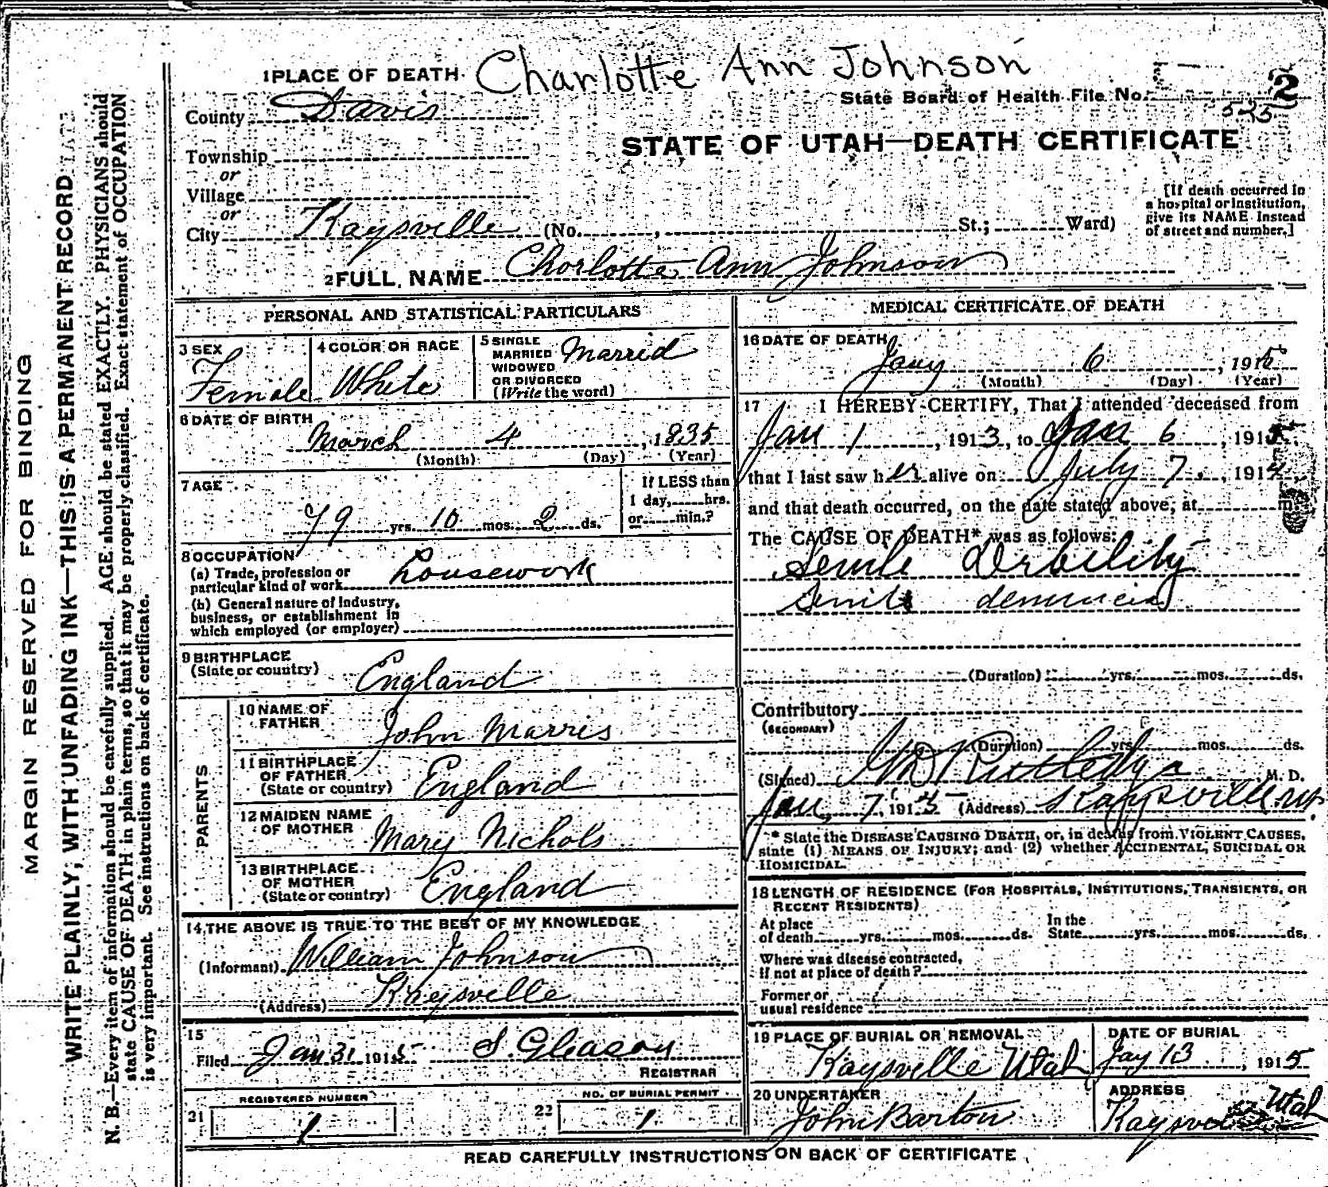 Charlotte Ann Johnson
1 PLACE OF DEATH
County Davis
State Board of Health File No. 2
525
STATE OF UTAH—DEATH CERTIFICATE
Township
or
Village
or
City Kaysville (No. , St.; Ward)
[If death occurred in
a hospital or institution,
give its NAME instead
of street and number.]
2 FULL NAME Chorlotte Ann Johnson
PERSONAL AND STATISTICAL PARTICULARS
3 SEX
Female
4 COLOR OR RACE
White
5 SINGLE
MARRIED
WIDOWED
OR DIVORCED
(Write the word)
Marrid
6 DATE OF BIRTH
March 4, 1835
(Month) (Day) (Year)
7 AGE
79 yrs. 10 mos. 2 ds.
If LESS than
1 day, hrs.
or min.?
8 OCCUPATION
(a) Trade, profession or
particular kind of work housework
(b) General nature of industry,
business, or establishment in
which employed (or employer)
9 BIRTHPLACE
(State or country) England
PARENTS
10 NAME OF
FATHER John Marris
11 BIRTHPLACE
OF FATHER
(State or country) England
12 MAIDEN NAME
OF MOTHER Mary Nichols
13 BIRTHPLACE
OF MOTHER
(State or country) England
14 THE ABOVE IS TRUE TO THE BEST OF MY KNOWLEDGE
(Informant) William Johnson
(Address) Kaysville
15
Filed Jan 31 1915 S. Gleason
REGISTRAR
21 REGISTERED NUMBER
1
22 NO. OF BURIAL PERMIT
1
MEDICAL CERTIFICATE OF DEATH
16 DATE OF DEATH
Jany 6, 1915
(Month) (Day) (Year)
17 I HEREBY CERTIFY, That I attended deceased from
Jan 1, 1913, to Jan 6, 1915
that I last saw her alive on July 7, 1914
and that death occurred, on the date stated above, at m.
The CAUSE OF DEATH* was as follows:
Senile Debility
Senile
(Duration) yrs. mos. ds.
Contributory
(SECONDARY)
(Duration) yrs. mos. ds.
(Signed) Rutledge M. D.
Jan 7, 1915 (Address) Kaysville Ut.
* State the DISEASE CAUSING DEATH, or, in deaths from VIOLENT CAUSES,
state (1) MEANS OF INJURY; and (2) whether ACCIDENTAL, SUICIDAL OR
HOMICIDAL.
18 LENGTH OF RESIDENCE (FOR HOSPITALS, INSTITUTIONS, TRANSIENTS, OR
RECENT RESIDENTS)
At place
of death yrs. mos. ds.
In the
State yrs. mos. ds.
Where was disease contracted,
if not at place of death?
Former or
usual residence
19 PLACE OF BURIAL OR REMOVAL
Kaysville Utah
DATE OF BURIAL
Jay 13, 1915
20 UNDERTAKER
John Barton
ADDRESS
Utah
READ CAREFULLY INSTRUCTIONS ON BACK OF CERTIFICATE
MARGIN RESERVED FOR BINDING
WRITE PLAINLY, WITH UNFADING INK—THIS IS A PERMANENT RECORD
N. B.—Every item of information should be carefully supplied. AGE should be stated EXACTLY. PHYSICIANS should
state CAUSE OF DEATH in plain terms, so that it may be properly classified. Exact statement of OCCUPATION
is very important. See instructions on back of certificate.